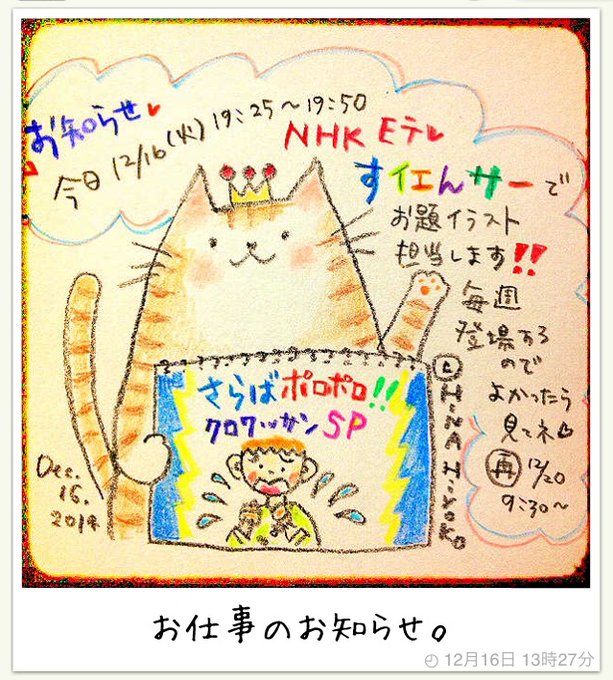 お知らせ♥
今日 12/16(火) 19:25〜19:50
NHK Eテレ
すイエんサーで
お題イラスト
担当します!!
毎週
登場する
ので
よかったら
見てネ
再 12/20
9:30〜
さらばポロポロ!!
クロワッサンSP
Dec.
16.
2014
HiNA HiyoKo
お仕事のお知らせ。
12月16日 13時27分